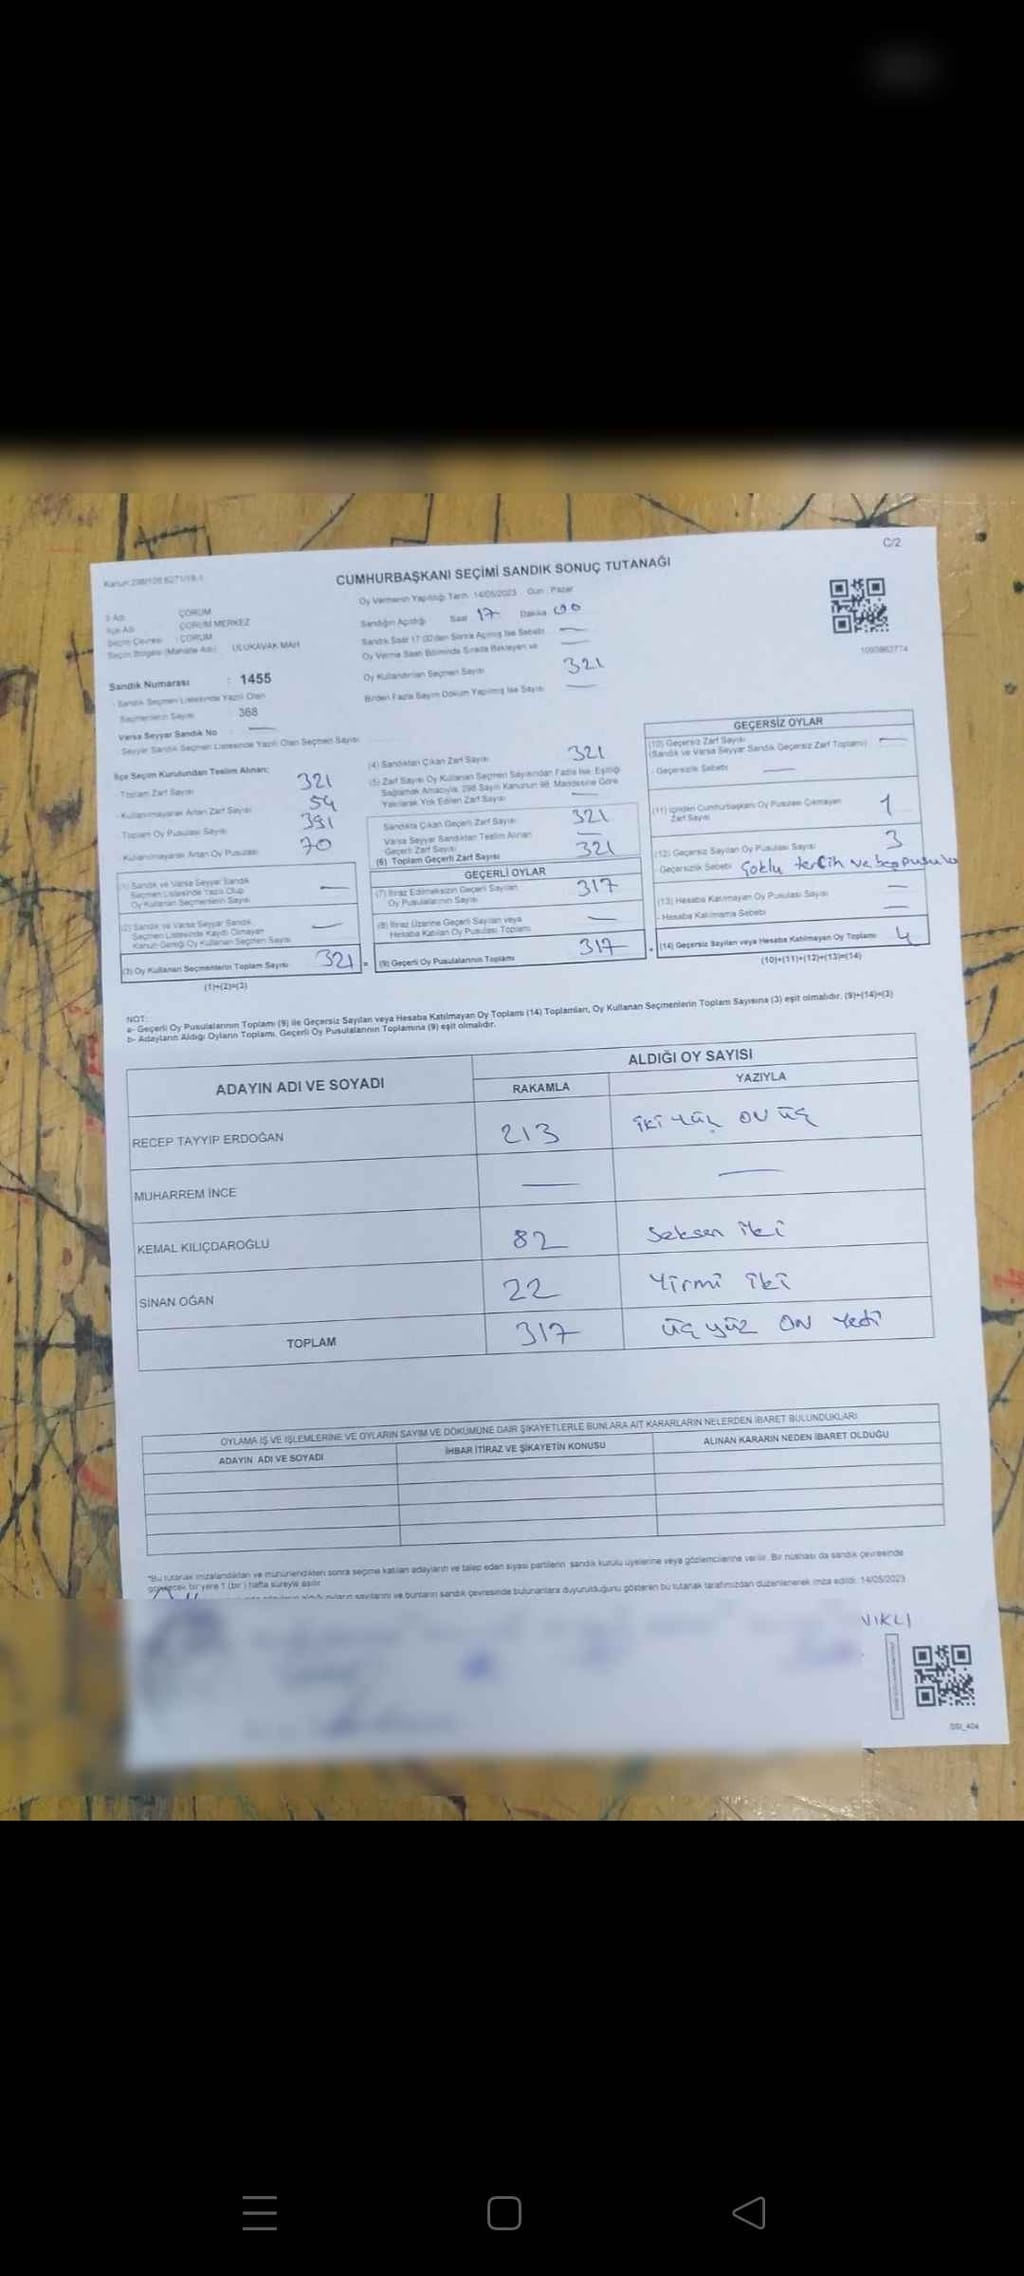 C/2
CUMHURBAŞKANI SEÇİMİ SANDIK SONUÇ TUTANAĞI
Oy Vermenin Yapıldığı Tarih 14/05/2023 Gün Pazar
İl Adı ÇORUM
İlçe Adı ÇORUM MERKEZ
Seçim Çevresi : ÇORUM
Seçim Bölgesi (Mahalle Adı) ULUKAVAK MAH
Sandığın Açıldığı Saat 17 Dakika 00
Sandık Saat 17.00'den Sonra Açılmış İse Sebebi —
Oy Verme Saati Bitiminde Sırada Bekleyen ve —
Oy Kullandırılan Seçmen Sayısı 321
Birden Fazla Sayım Döküm Yapılmış İse Sayısı —
Sandık Numarası : 1455
Sandık Seçmen Listesinde Yazılı Olan
Seçmenlerin Sayısı : 368
Varsa Seyyar Sandık No —
Seyyar Sandık Seçmen Listesinde Yazılı Olan Seçmen Sayısı
İlçe Seçim Kurulundan Teslim Alınan;
- Toplam Zarf Sayısı 321
- Kullanılmayarak Artan Zarf Sayısı 54
- Toplam Oy Pusulası Sayısı 391
- Kullanılmayarak Artan Oy Pusulası 70
(1) Sandık ve Varsa Seyyar Sandık
Seçmen Listesinde Yazılı Olup
Oy Kullanan Seçmenlerin Sayısı —
(2) Sandık ve Varsa Seyyar Sandık
Seçmen Listesinde Kaydı Olmayan
Kanun Gereği Oy Kullanan Seçmen Sayısı —
(3) Oy Kullanan Seçmenlerin Toplam Sayısı 321 =
(1)+(2)=(3)
(4) Sandıktan Çıkan Zarf Sayısı 321
(5) Zarf Sayısı Oy Kullanan Seçmen Sayısından Fazla İse, Eşitliği
Sağlamak Amacıyla, 298 Sayılı Kanunun 98. Maddesine Göre
Yakılarak Yok Edilen Zarf Sayısı —
Sandıkta Çıkan Geçerli Zarf Sayısı 321
Varsa Seyyar Sandıktan Teslim Alınan
Geçerli Zarf Sayısı —
(6) Toplam Geçerli Zarf Sayısı 321
GEÇERLİ OYLAR
(7) İtiraz Edilmeksizin Geçerli Sayılan
Oy Pusulalarının Sayısı 317
(8) İtiraz Üzerine Geçerli Sayılan veya
Hesaba Katılan Oy Pusulası Toplamı —
(9) Geçerli Oy Pusulalarının Toplamı 317
GEÇERSİZ OYLAR
(10) Geçersiz Zarf Sayısı —
(Sandık ve Varsa Seyyar Sandık Geçersiz Zarf Toplamı)
- Geçersizlik Sebebi —
(11) İçinden Cumhurbaşkanı Oy Pusulası Çıkmayan
Zarf Sayısı 1
(12) Geçersiz Sayılan Oy Pusulası Sayısı 3
- Geçersizlik Sebebi Çoklu tercih ve boş pusula
(13) Hesaba Katılmayan Oy Pusulası Sayısı —
- Hesaba Katılmama Sebebi —
(14) Geçersiz Sayılan veya Hesaba Katılmayan Oy Toplamı 4
(10)+(11)+(12)+(13)=(14)
NOT:
a- Geçerli Oy Pusulalarının Toplamı (9) ile Geçersiz Sayılan veya Hesaba Katılmayan Oy Toplamı (14) Toplamları, Oy Kullanan Seçmenlerin Toplam Sayısına (3) eşit olmalıdır. (9)+(14)=(3)
b- Adayların Aldığı Oyların Toplamı, Geçerli Oy Pusulalarının Toplamına (9) eşit olmalıdır.
ADAYIN ADI VE SOYADI
ALDIĞI OY SAYISI
RAKAMLA YAZIYLA
RECEP TAYYİP ERDOĞAN 213 iki yüz on üç
MUHARREM İNCE — —
KEMAL KILIÇDAROĞLU 82 Seksen iki
SİNAN OĞAN 22 Yirmi iki
TOPLAM 317 üç yüz on Yedi
OYLAMA İŞ VE İŞLEMLERİNE VE OYLARIN SAYIM VE DÖKÜMÜNE DAİR ŞİKAYETLERLE BUNLARA AİT KARARLARIN NELERDEN İBARET BULUNDUKLARI
ADAYIN ADI VE SOYADI İHBAR İTİRAZ VE ŞİKAYETİN KONUSU ALINAN KARARIN NEDEN İBARET OLDUĞU
"Bu tutanak imzalandıktan ve mühürlendikten sonra seçime katılan adayların ve talep eden siyasi partilerin sandık kurulu üyelerine veya gözlemcilerine verilir. Bir nüshası da sandık çevresinde
bir yere 1 (bir) hafta süreyle asılır.
oyların sayılarını ve bunların sandık çevresinde bulunanlara duyurulduğunu gösteren bu tutanak tarafımızdan düzenlenerek imza edildi. 14/05/2023